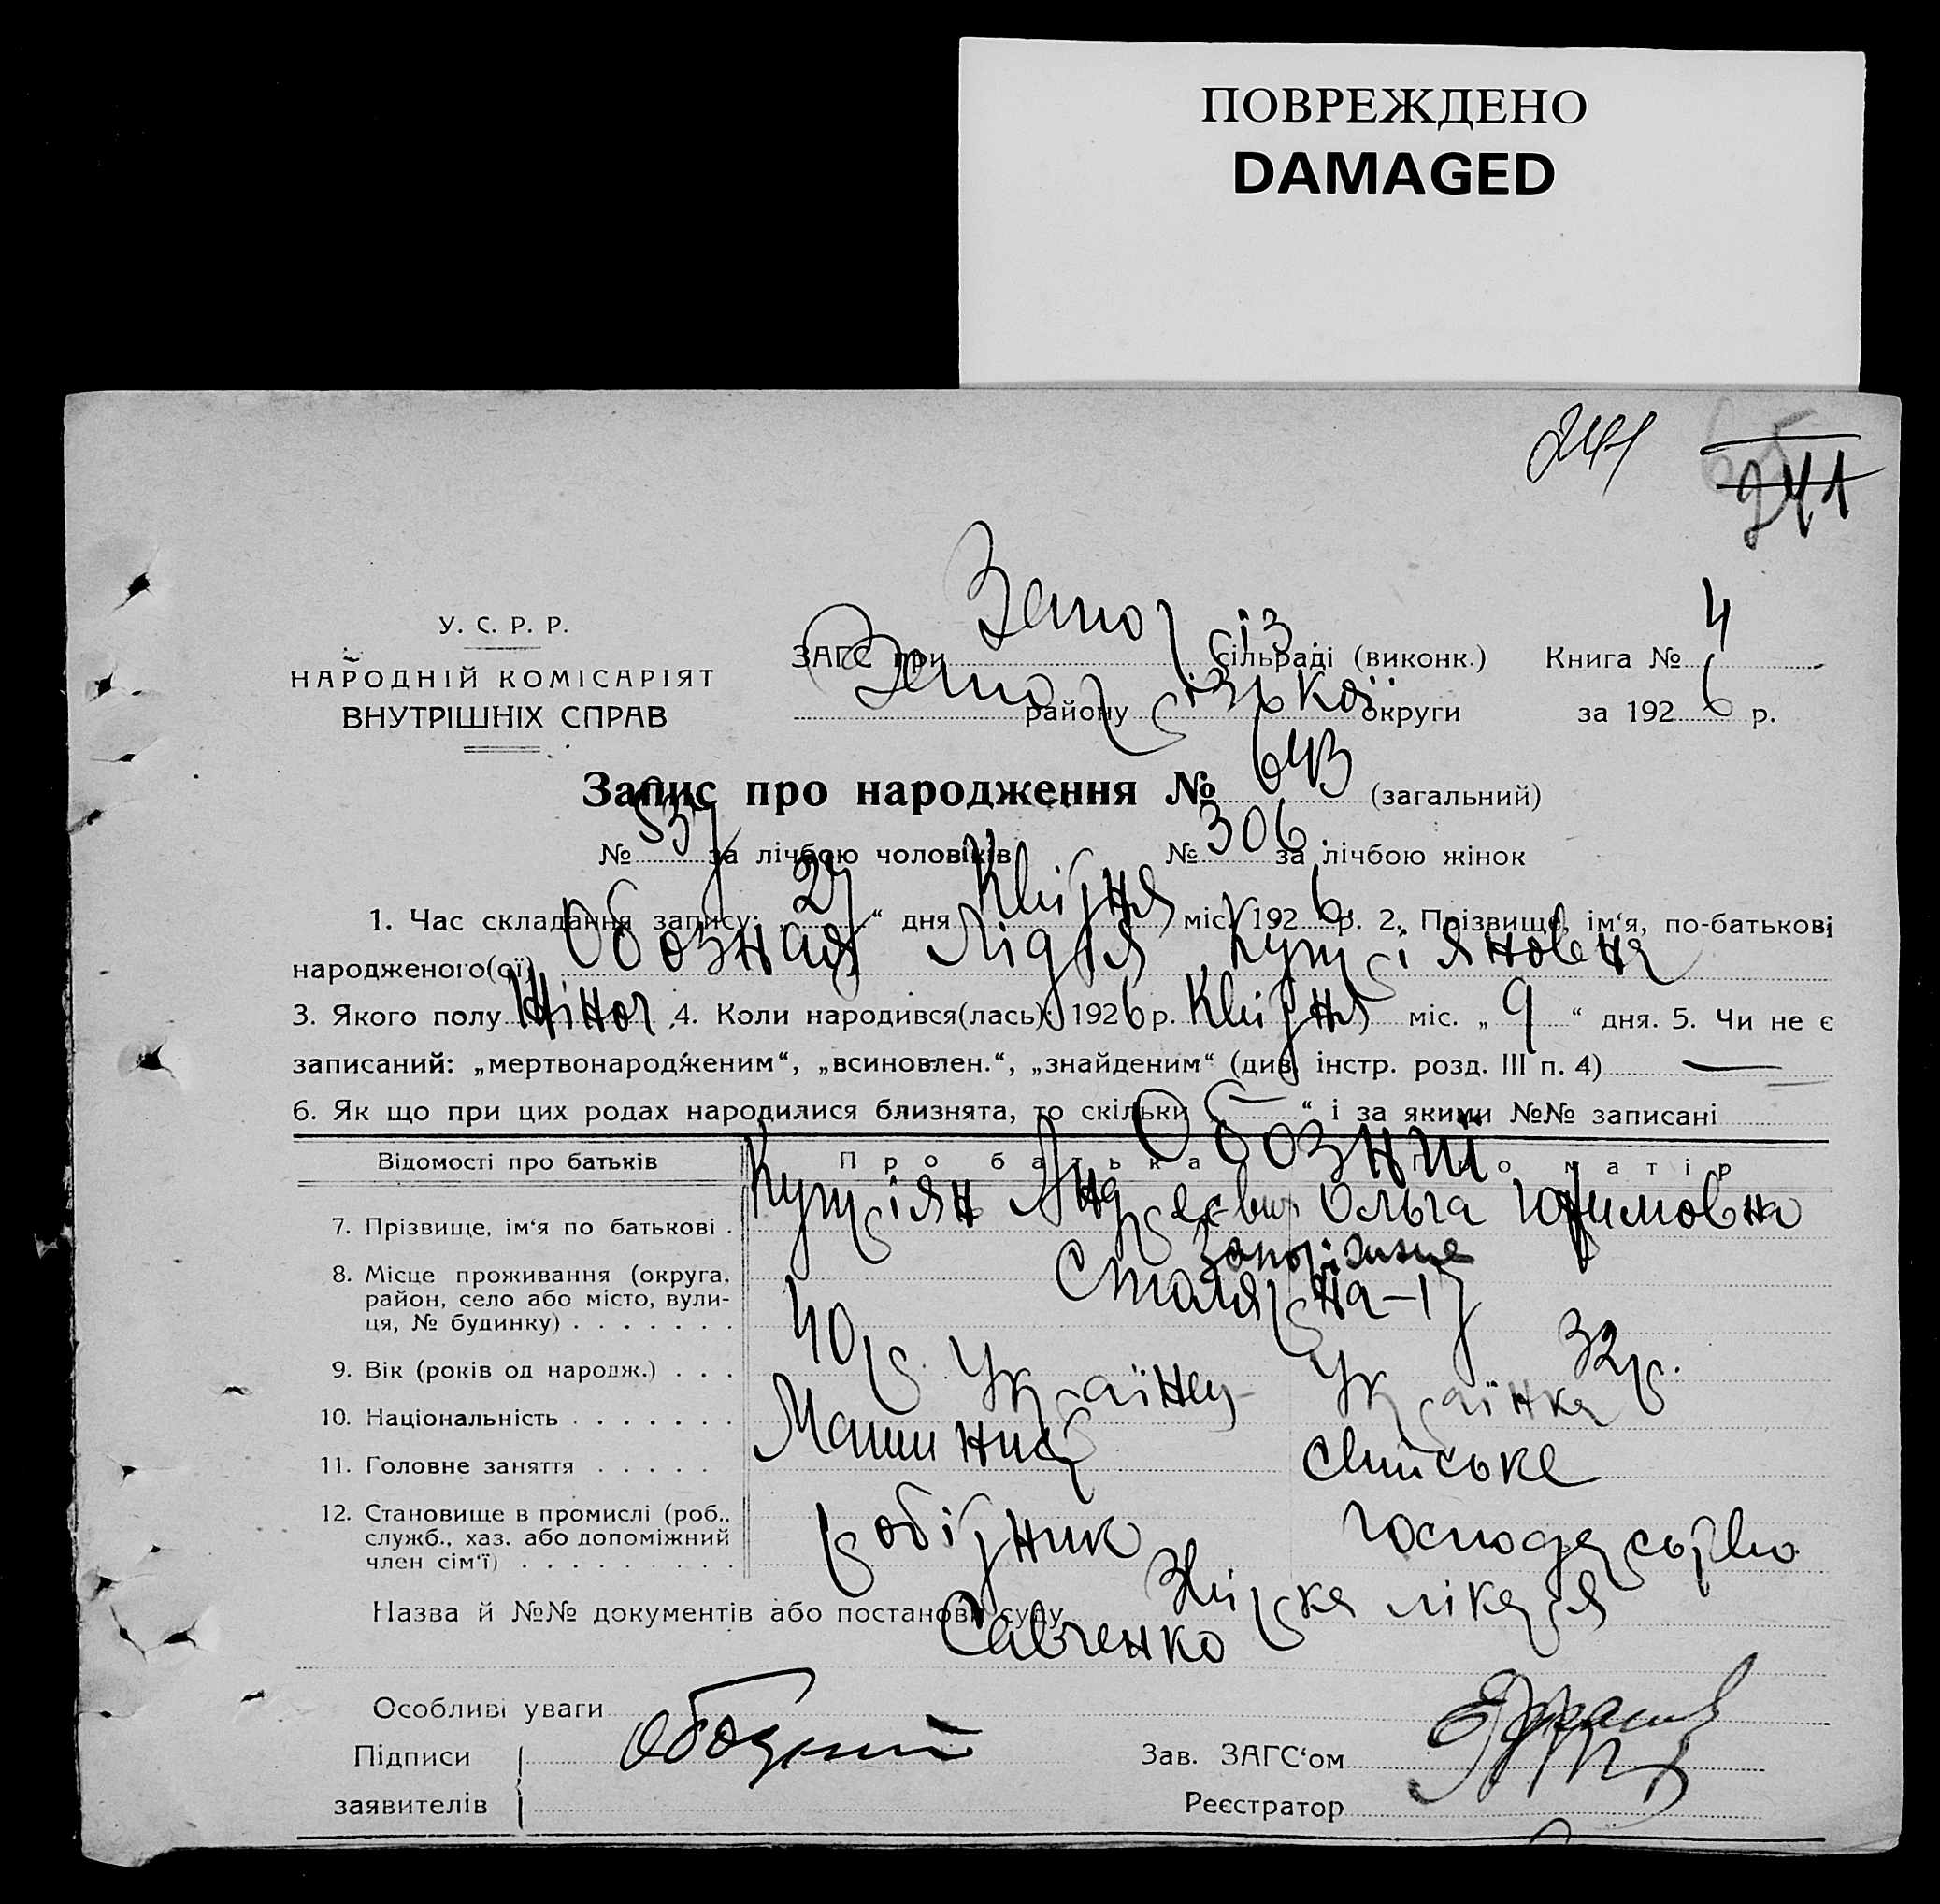 ПОВРЕЖДЕНО
DAMAGED
241
65
241
У. С. Р. Р.
НАРОДНІЙ КОМІСАРІЯТ
ВНУТРІШНІХ СПРАВ
ЗАГС при Запоріз сільраді (виконк.) Книга № 4
району Запорізької округи за 1926 р.
Запис про народження № 643 (загальний)
№ 337 за лічбою чоловіків № 306 за лічбою жінок
1. Час складання запису: „27“ дня Квітня міс. 1926 р. 2. Прізвище, ім‘я, по-батькові
народженого(ої) Обозная Лідія Купріяновна
3. Якого полу Жіноч 4. Коли народився(лась): 1926 р. Квітня міс. „9“ дня. 5. Чи не є
записаний: „мертвонародженим“, „всиновлен.“, „знайденим“ (див. інстр. розд. III п. 4) —
6. Як що при цих родах народилися близнята, то скільки „—“ і за якими №№ записані
Відомості про батьків Про батька Про матір
Обозний
7. Прізвище, ім‘я по батькові . Купріян Андреєвич Ольга Юхимовна
8. Місце проживання (округа, район, село або місто, вулиця, № будинку) . . . . . . . Запоріжжа
Столярна–17
9. Вік (років од народж.) . . . 40 р. 32 р.
10. Національність . . . . . . . Українец Українка
11. Головне заняття . . . . . Машинист свійське
12. Становище в промислі (роб., служб., хаз. або допоміжний член сім‘ї) . . . . . . . . . робітник господарство
Назва й №№ документів або постанови суду Звірка лікаря
Савченко
Особливі уваги
Підписи Обозний Зав. ЗАГС‘ом
заявителів Реєстратор